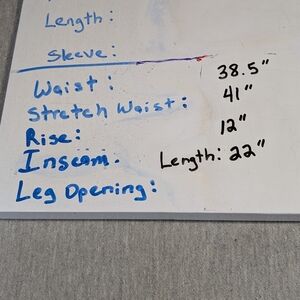 Length:
Sleeve:
Waist: 38.5"
Stretch Waist: 41"
Rise: 12"
Inseam. Length: 22"
Leg Opening: